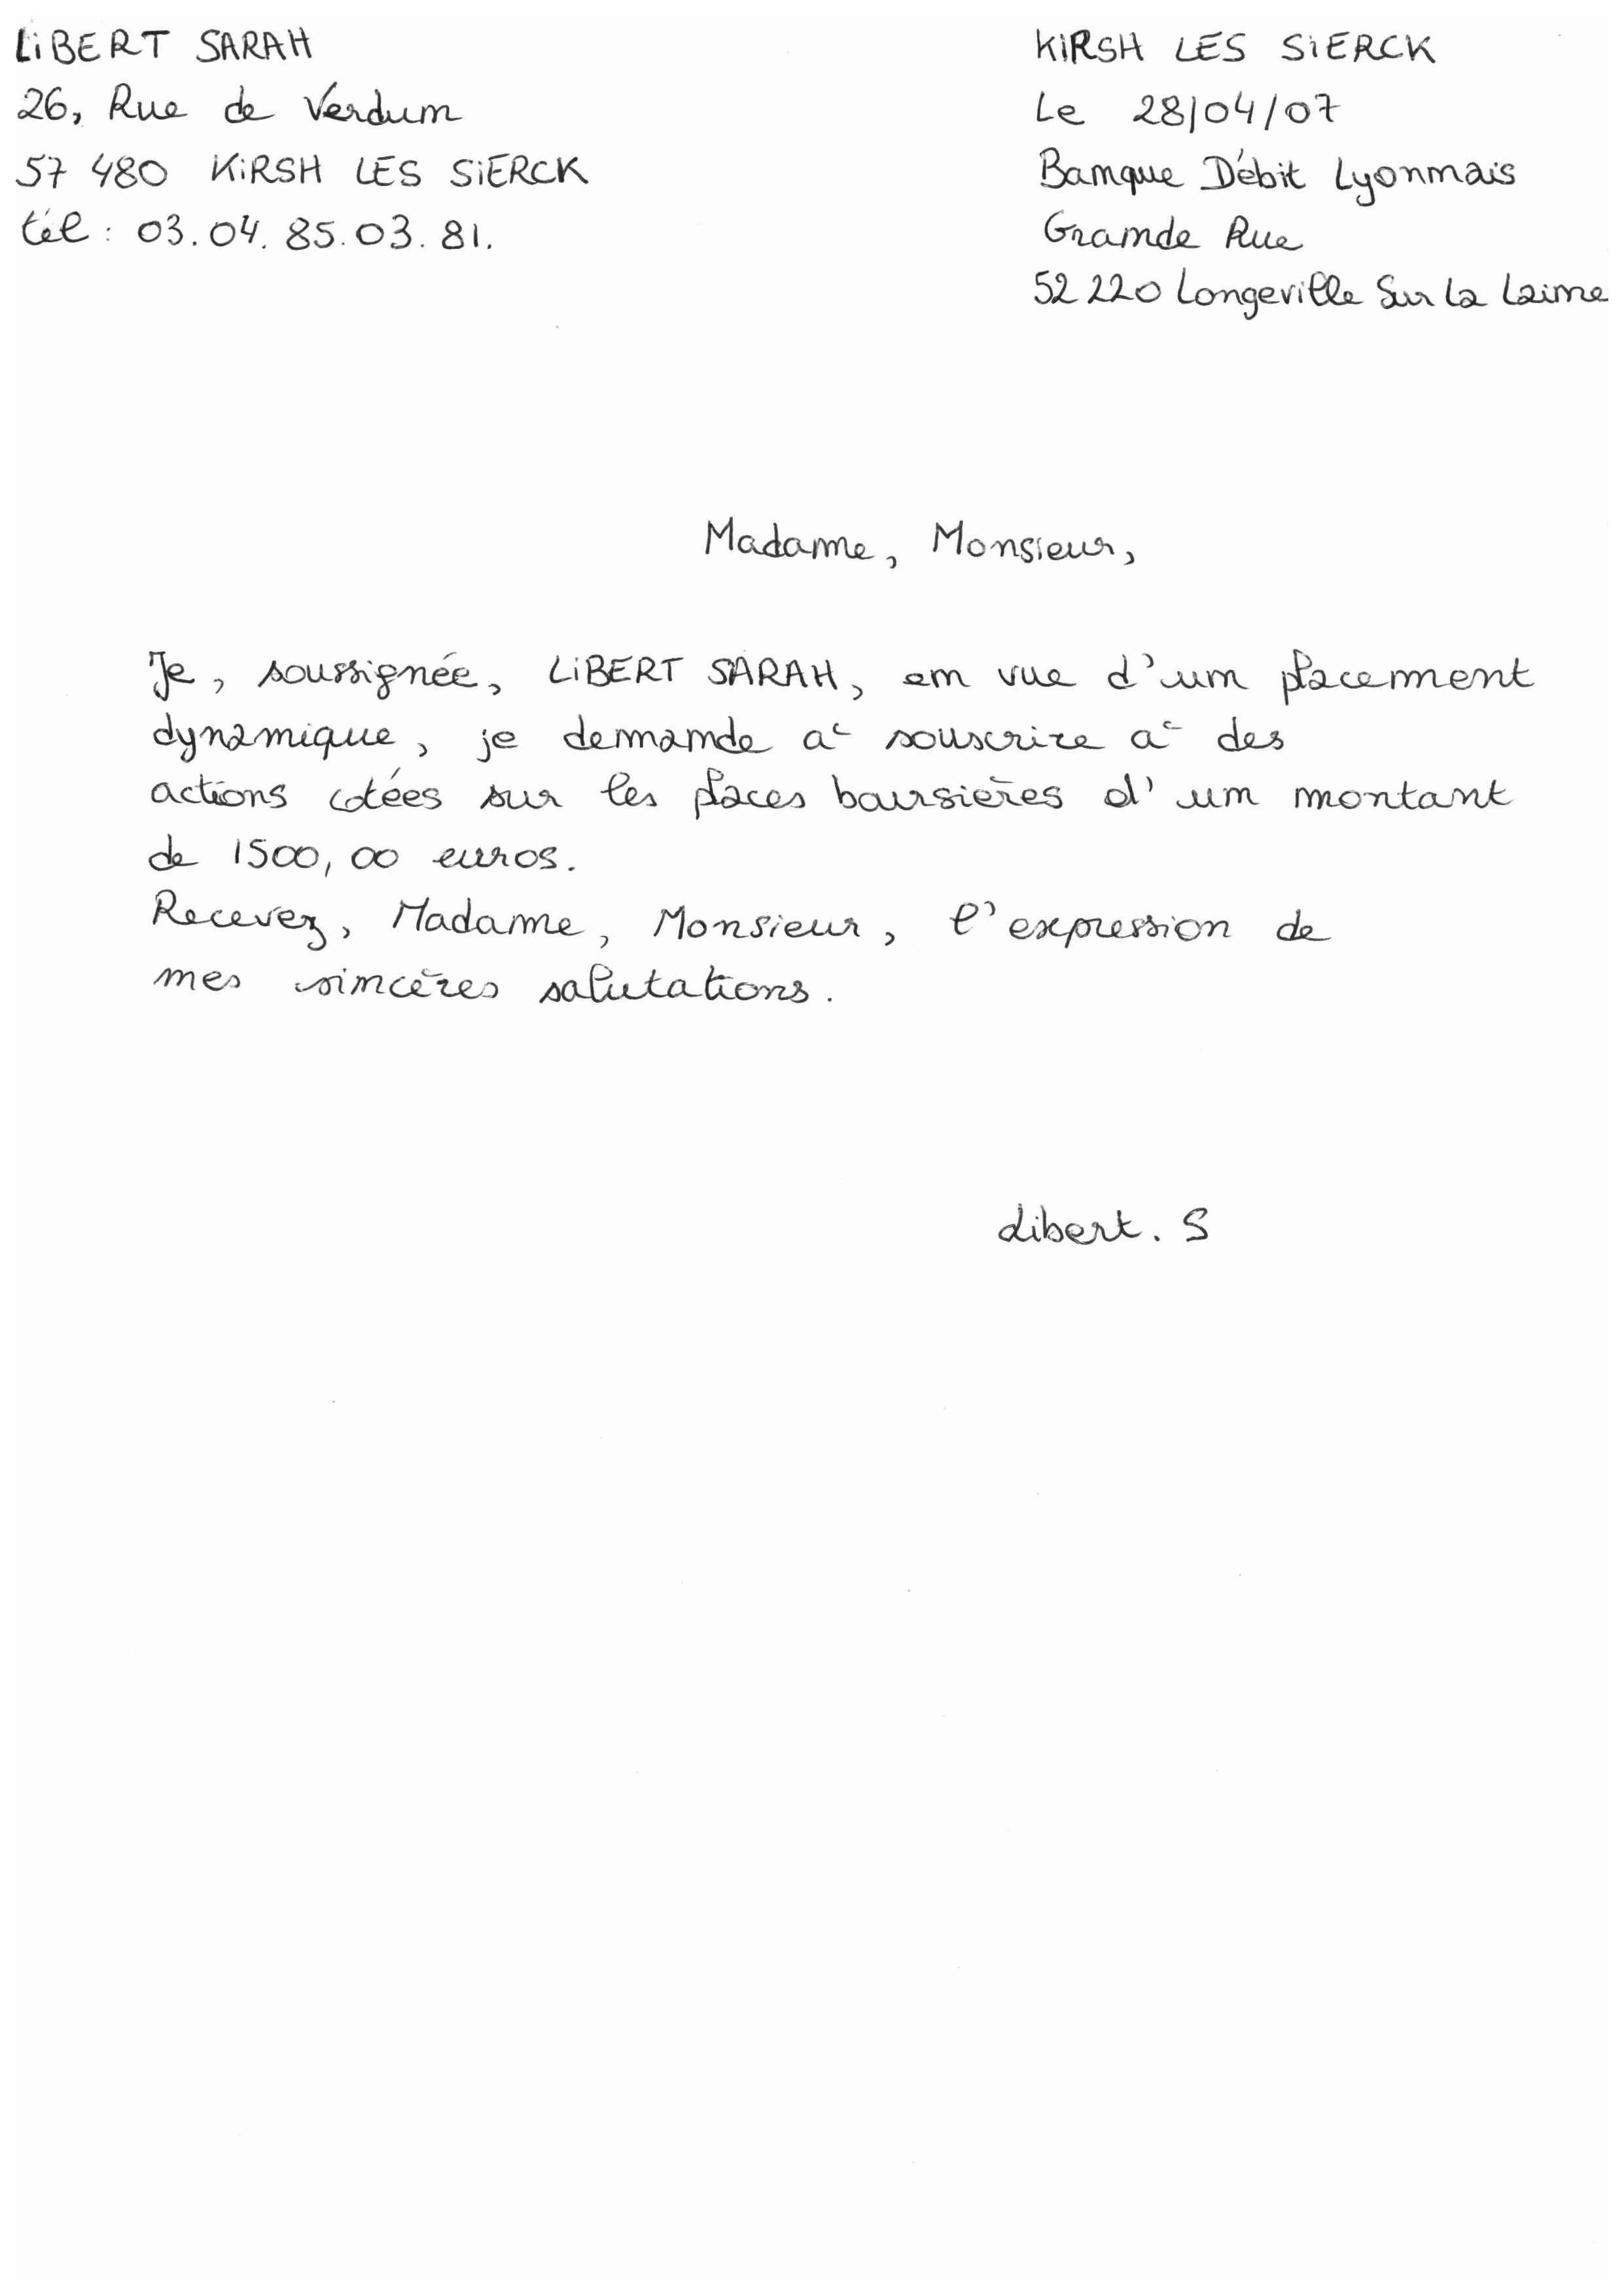 LIBERT SARAH
26, Rue de Verdun
57 480 KIRSH LES SIERCK
tél : 03.04.85.03.81.
KIRSH LES SIERCK
Le 28/04/07
Banque Débit Lyonnais
Grande Rue
52 220 Longeville Sur La Laine
Madame, Monsieur,
Je, soussignée, LIBERT SARAH, en vue d'un placement
dynamique, je demande à souscrire à des
actions cotées sur les places boursières d'un montant
de 1500,00 euros.
Recevez, Madame, Monsieur, l'expression de
mes sincères salutations.
Libert. S